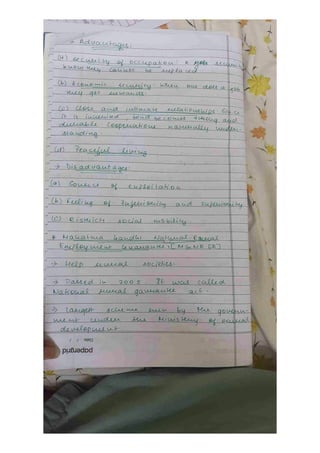 → Advantages:
(a) Security of occupation & job security
knows they cannot be replaced
(b) Economic security when one does a job,
they get rewards
(c) close and intimate relationships
it is inherited, bond becomes strong and
desirable cooperations mutually under-
standing
(d) Peaceful living
→ Disadvantages
(a) Source of exploitation
(b) Feeling of Inferiority and Superiority
(c) Restrict social mobility
* Mahatma Gandhi National Rural
Employment Guarantee [MGNREA]
→ Help rural societies
→ Passed in 2005. It was called
National rural guarantee act.
→ Largest scheme run by the govern-
ment under the Ministry of rural
development
Date / /
papergrid